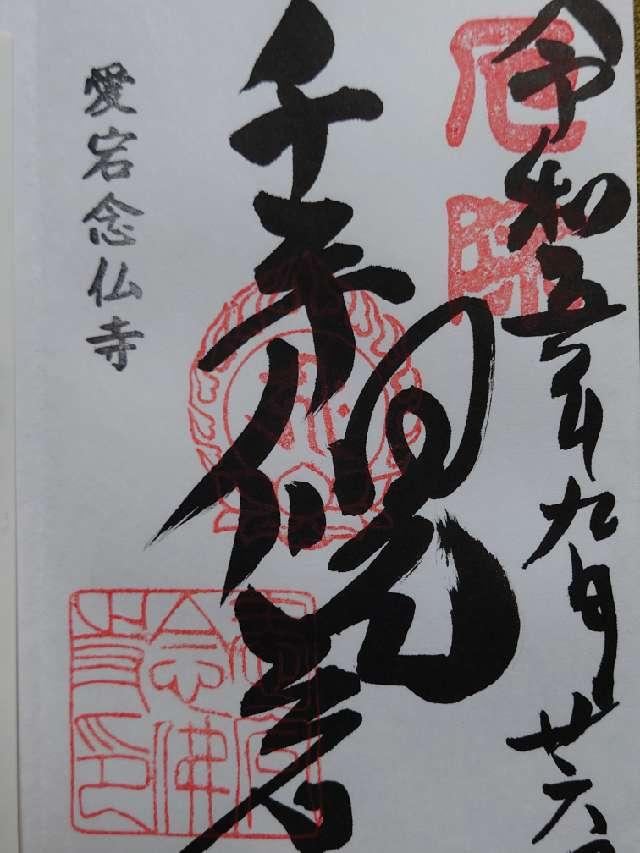 令和五年九月廿六日
厄除
千手観音
愛宕念仏寺
愛宕念佛寺印